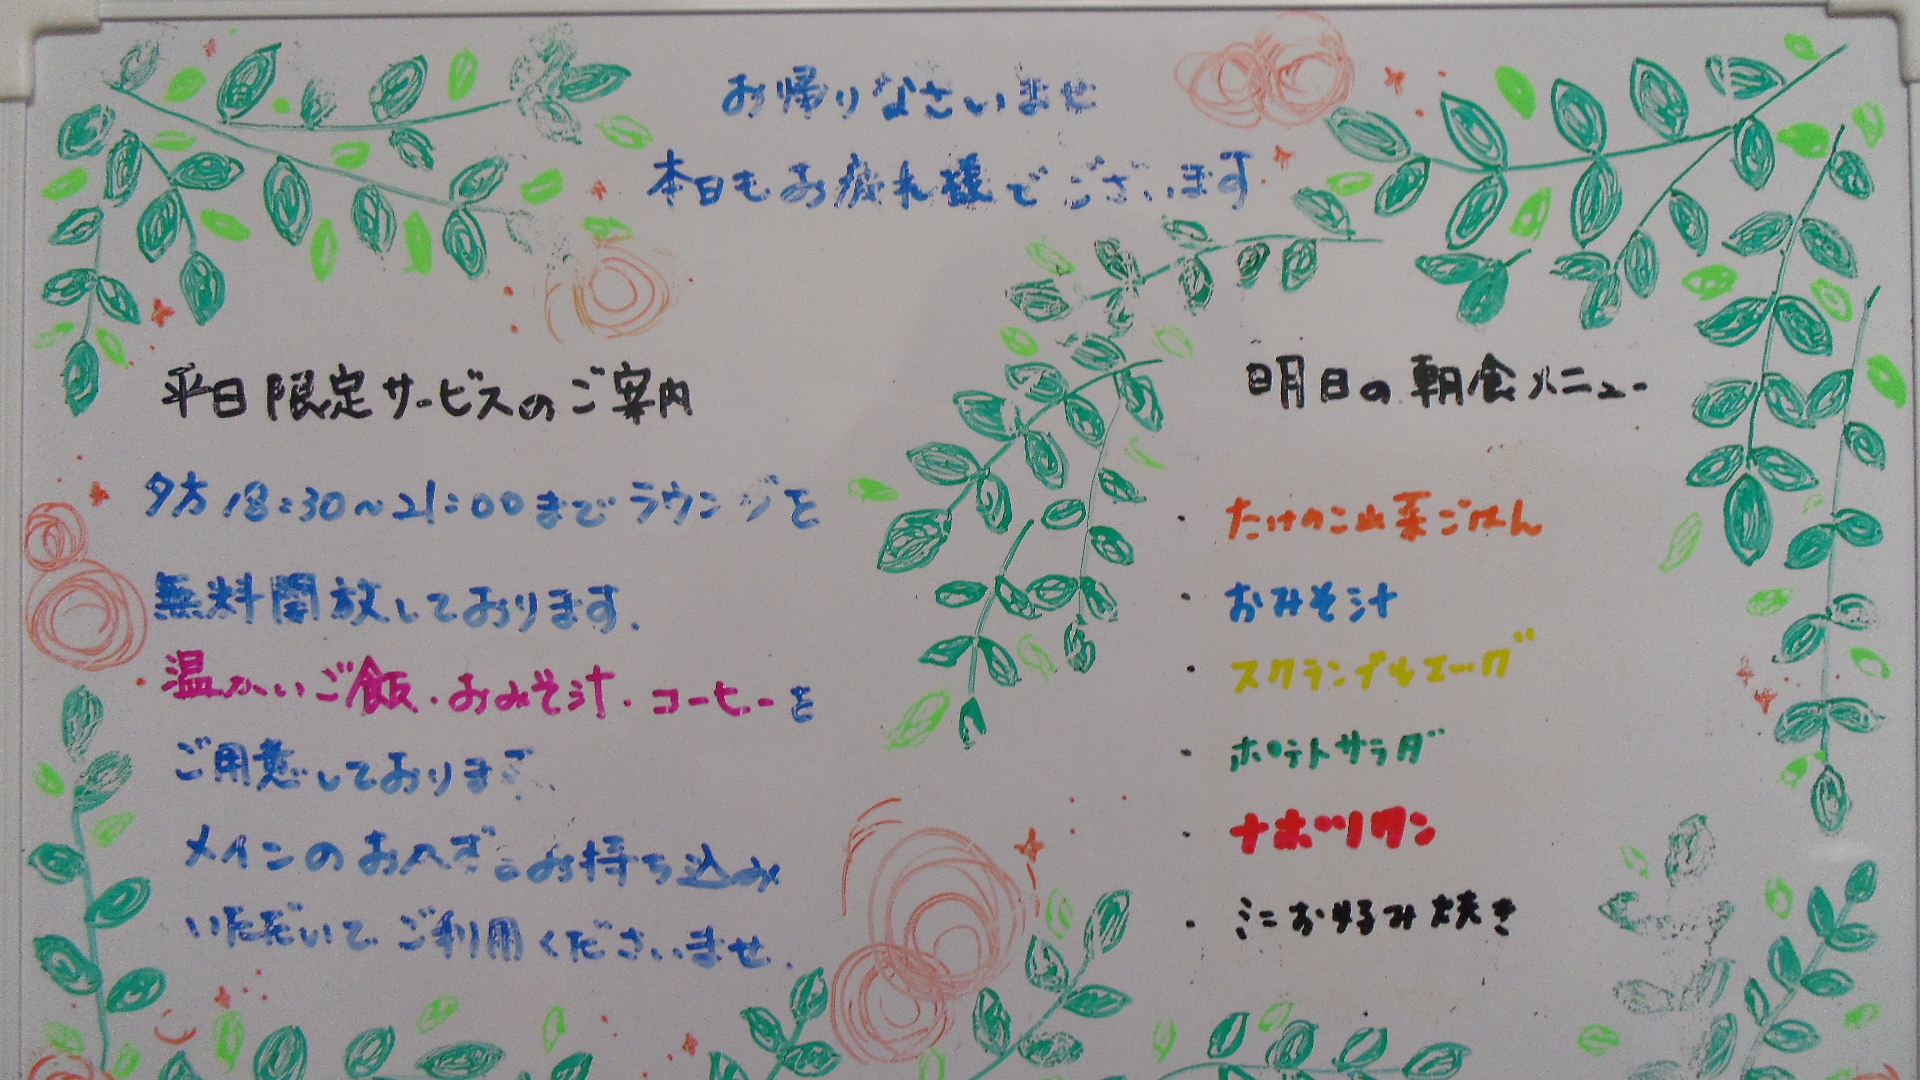 お帰りなさいませ
本日もお疲れ様でございます
平日限定サービスのご案内
夕方18:30~21:00までラウンジを
無料開放しております.
温かいご飯・おみそ汁・コーヒーを
ご用意しております.
メインのおかずをお持ち込み
いただいてご利用くださいませ.
明日の朝食メニュー
・たけのこ山菜ごはん
・おみそ汁
・スクランブルエッグ
・ポテトサラダ
・ナポリタン
・ミニお好み焼き